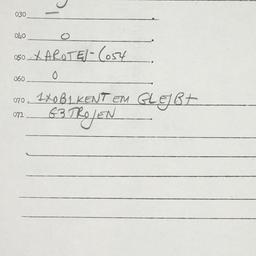 030 —
040 0
050 XAROTEJ-(054
060 0
070 1X0B1KENT EM GLEJBT
071 G3TROJEN